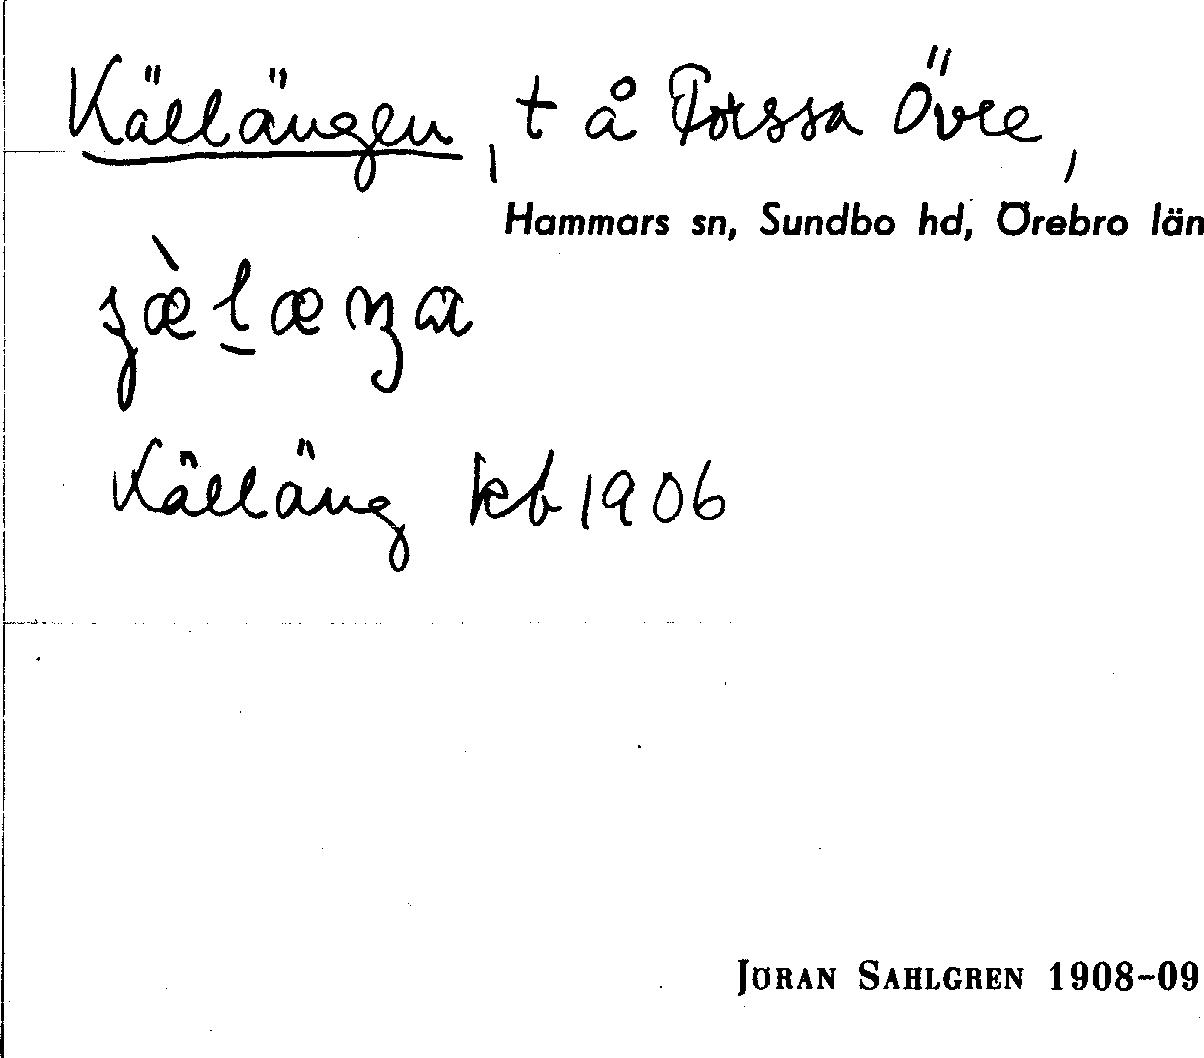 Källängen, t å Forssa Övre,
Hammars sn, Sundbo hd, Örebro län
Källäng kb 1906
JÖRAN SAHLGREN 1908–09